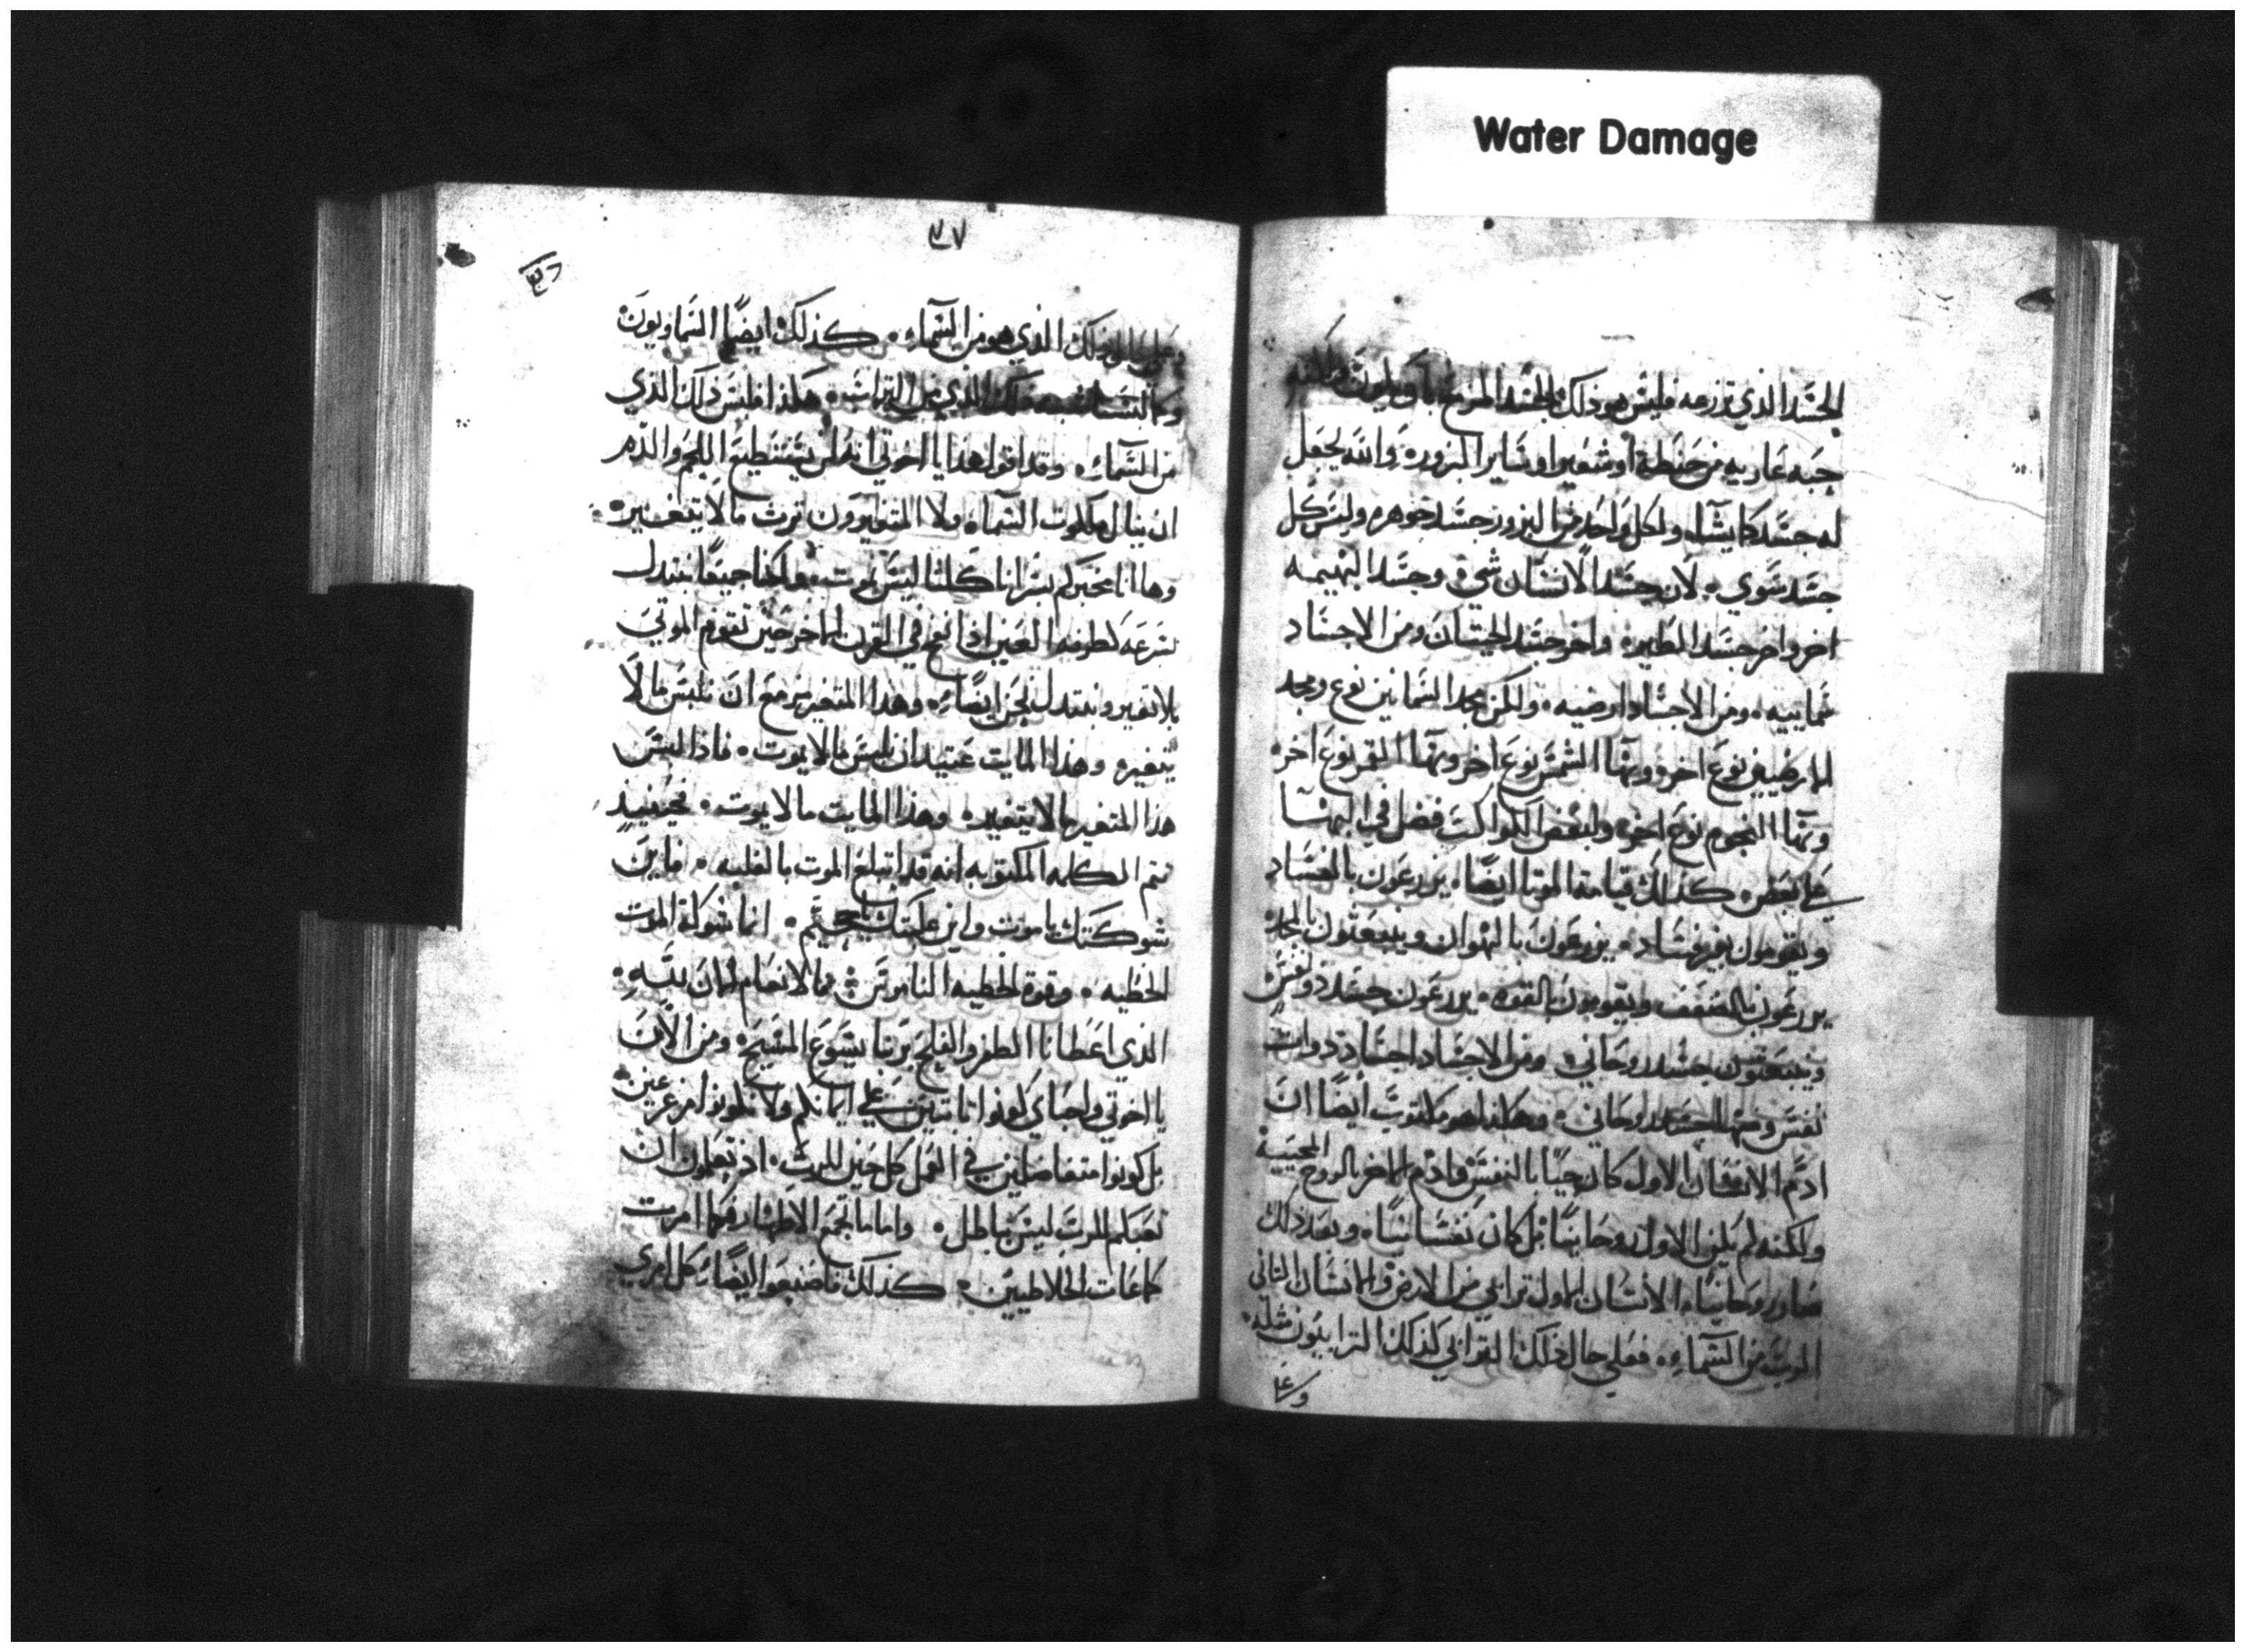 Water Damage
الجسد الذي تزرعه فليس هو ذلك الجسد المزمع بان يكون لكنه
حبه عاريه من حنطة او شعير او ساير البزوره والله يجعل
له جسد كما يشاء ولكل واحد من البزور جسد جوهره وليس كل
جسد سوي لان جسد الانسان شي وجسد البهيمه
اخر واخر جسد الطير واخر جسد الحيتان ومن الاجساد
سماييه ومن الاجساد ارضيه ولكن مجد السمايين نوع ومجد
الارضيين نوع اخر وبها الشمس نوع اخر وبها القمر نوع اخر
وبها النجوم نوع اخر ولبعض الكواكب فضل في البها
علي بعض كذلك قيامة الموتا ايضا يزرعون بالفساد
ويقومون بغير فساد يزرعون بالهوان وينبعثون بالمجد
يزرعون بالضعف ويقومون بالقوه يزرعون جسد ذو نفس
وينبعثون جسد روحاني ومن الاجساد اجساد ذوات
نفس ومنها جسد روحاني وهكذا هو مكتوب ايضا ان
ادم الانسان الاول كان حيا بالنفس وادم الاخر بالروح المحييه
ولكنه لم يكن الاول روحانيا بل كان نفسانيا وبعد ذلك
صار روحانيا الانسان الاول ترابي من الارض والانسان الثاني
الرب من السماء فعلي حال ذلك الترابي كذلك الترابيون مثله
وعلي
٣٧
وعلي حال ذلك الذي هو من السماء كذلك ايضا السماويون
وكما لبسنا شبه ذلك الذي من التراب هكذا فلبس ذلك الذي
من السماء وقد اقول هذا يا اخوتي انه لن يستطيع اللحم والدم
ان ينال ملكوت السماء ولا المتغيرون ترث ما لا يتغير
وها انا مخبركم بسر اننا كلنا ليس نموت ولكنا جميعا نبتدل
بسرعه كطرفة العين اذا نفخ في القرن الاخر حين تقوم الموتي
بلا تغيير ونبتدل نحن ايضا وهذا المتغير مزمع ان يلبس ما لا
يتغير وهذا المايت عتيد ان يلبس ما لا يموت فاذا لبس
هذا المتغير ما لا يتغير وهذا المايت ما لا يموت فحينيذ
تتم الكلمه المكتوبه انه قد ابتلع الموت بالغلبه فاين
شوكتك يا موت واين غلبتك يا جحيم انما شوكة الموت
الخطيه وقوة الخطيه الناموس فالانعام الان لله
الذي اعطانا الظفر والفلج بربنا يسوع المسيح ومن الان
يا اخوتي واحباي كونوا ثابتين علي ايمانكم ولا تكونوا مزعزعين
بل كونوا متفاضلين في العمل كل حين للرب اذ تعلمون ان
تعبكم للرب ليس بباطل واما ما يجمع الاطهار فكما امرت
كماعات الغلاطيين كذلك فاصنعوا ايضا كل امري